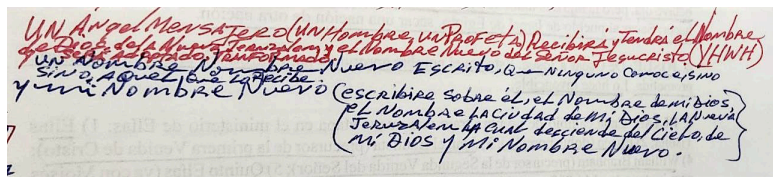 UN Angel MENSAJERO (UN Hombre, UN PROFETA) Recibirá y Tendrá el Nombre
de Dios, de la Nueva Jeruzalem y el Nombre Nuevo del SEÑOR Jesucristo (YHWH)
SERÁ ADOPTADO TRANFORMADO
UN Nombre Nuevo ESCRITO, Que NINGUNO CONOCE, SINO
SINO, AQUEL QUE LO RECIBE.
y mi Nombre Nuevo (escribire sobre él, el Nombre de mi Dios,
el Nombre LA CIUDAD de Mi Dios, LA Nueva
Jeruzalem LA CUAL desciende del Cielo, de
Mi Dios y Mi Nombre Nuevo.)
en el ministerio de Elías: 1) Elías
cursor de la primera Venida de Cristo);
precursor de la Segunda Venida del Señor); 5) Quinto Elías (va con Moisés